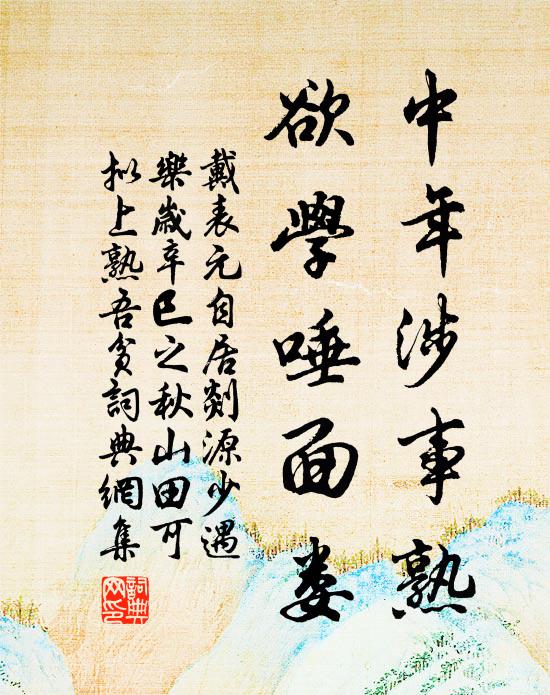 中年涉事熟
欲學唾面娄
戴表元自居剡源少遇
樂歲辛巳之秋山田可
拟上熟吾貧詞典網集
詞典